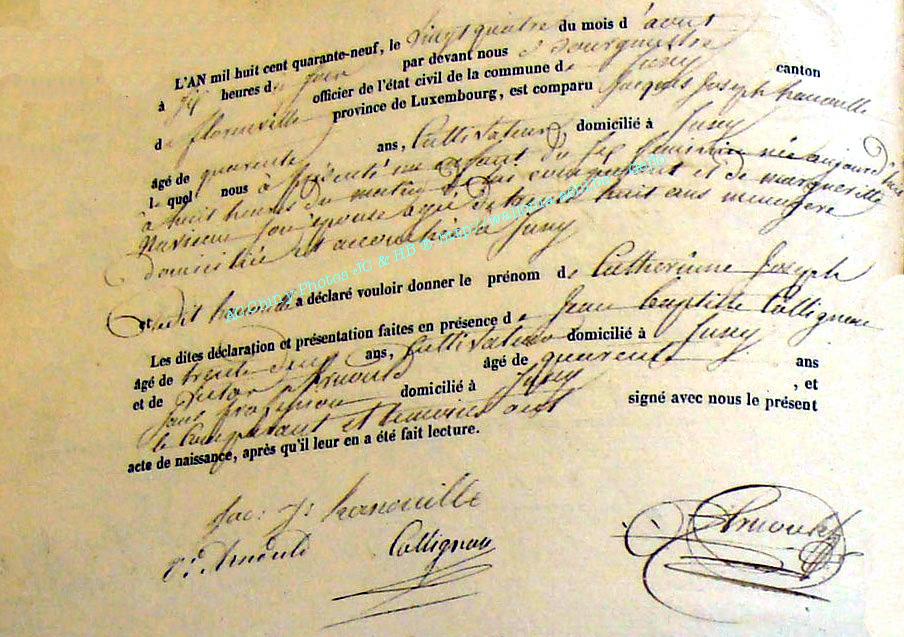 L'AN mil huit cent quarante-neuf, le vingt quatre du mois d'août
à six heures du soir par devant nous Bourgmestre
officier de l'état civil de la commune de Jzny canton
de florenville province de Luxembourg, est comparu Jacques Joseph hanouille
âgé de quarante ans, Cultivateur, domicilié à
lequel nous à présenté un enfant du sexe féminin née aujourd'hui
à huit heures du matin de lui comparant et de marguerite
son épouse agée de trente huit ans menagere
domiciliée et accouchée à
ledit hanouille a déclaré vouloir donner le prénom de Catherinne Joseph
Les dites déclaration et présentation faites en présence de Jean Baptiste Collignon
âgé de trente deux ans, Cultivateur domicilié à
et de Victor Arnould âgé de quarante ans
sans profession domicilié à , et
le Comparant et temoins ont signé avec nous le présent
acte de naissance, après qu'il leur en a été fait lecture.
Jac: J: hanouille
V: Arnould Collignon Arnould